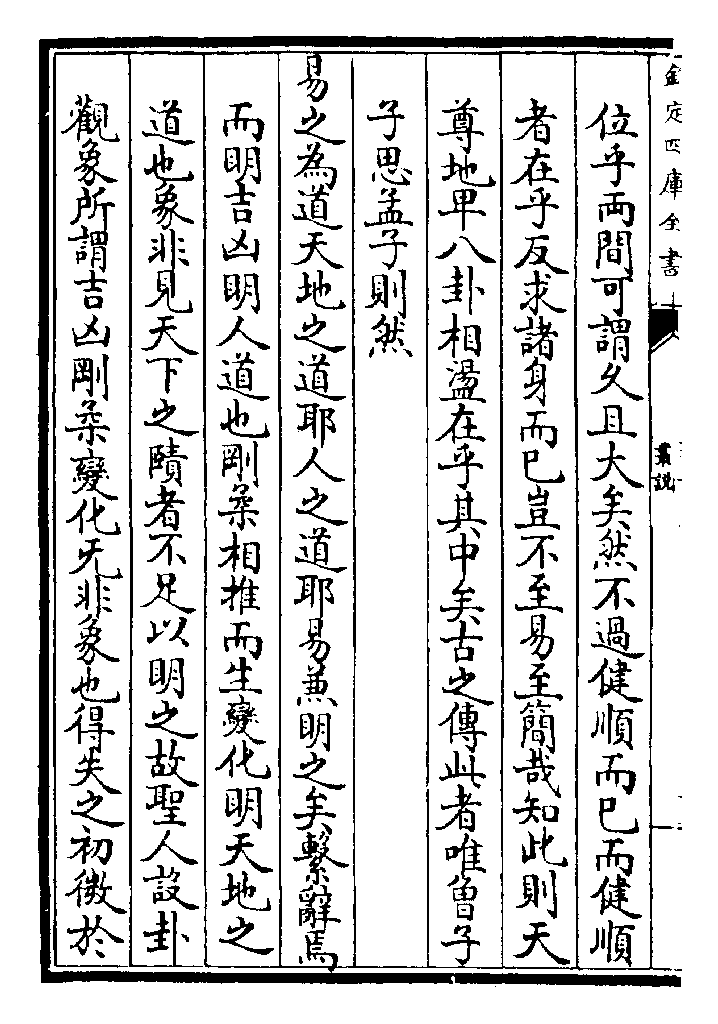 欽定四庫全書
叢說
位乎兩間可謂久且大矣然不過健順而已而健順
者在乎反求諸身而已豈不至易至簡哉知此則天
尊地卑八卦相盪在乎其中矣古之傳此者唯曾子
子思孟子則然
易之為道天地之道耶人之道耶易兼明之矣繫辭焉
而明吉凶明人道也剛柔相推而生變化明天地之
道也象非見天下之賾者不足以明之故聖人設卦
觀象所謂吉凶剛柔變化无非象也得失之初微於